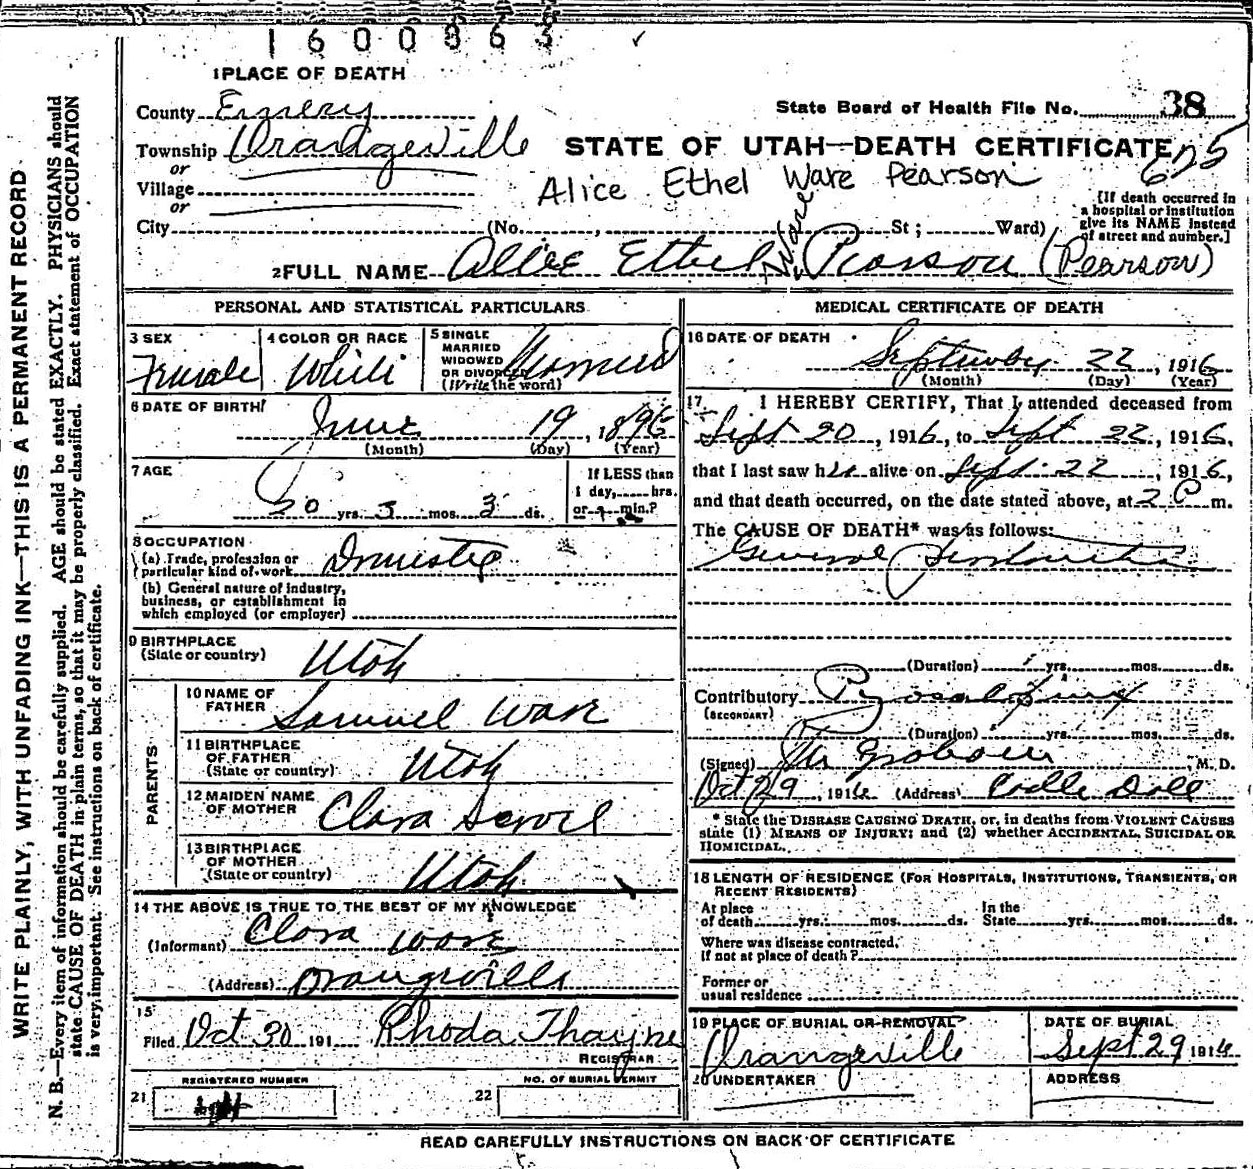 1600863
1 PLACE OF DEATH
County Emery
State Board of Health File No. 38
Township Orangeville
STATE OF UTAH—DEATH CERTIFICATE
675
or
Village
Alice Ethel Ware Pearson
or
[If death occurred in
a hospital or institution
give its NAME instead
of street and number.]
City (No. , St ; Ward)
2 FULL NAME Allice Ethel Ware Pearson (Pearson)
PERSONAL AND STATISTICAL PARTICULARS
3 SEX
Female
4 COLOR OR RACE
White
5 SINGLE
MARRIED
WIDOWED
OR DIVORCED
(Write the word)
Married
6 DATE OF BIRTH
June 19, 1896
(Month) (Day) (Year)
7 AGE
20 yrs. 3 mos. 3 ds.
If LESS than
1 day, hrs.
or min.?
8 OCCUPATION
(a) Trade, profession or
particular kind of work Domestic
(b) General nature of industry,
business, or establishment in
which employed (or employer)
9 BIRTHPLACE
(State or country) Utah
PARENTS
10 NAME OF
FATHER Samuel Ware
11 BIRTHPLACE
OF FATHER
(State or country) Utah
12 MAIDEN NAME
OF MOTHER Clara
13 BIRTHPLACE
OF MOTHER
(State or country) Utah
14 THE ABOVE IS TRUE TO THE BEST OF MY KNOWLEDGE
(Informant) Clara Ware
(Address) Orangeville
15
Filed Oct 30 191 Rhoda Thayne
REGISTRAR
REGISTERED NUMBER
21
NO. OF BURIAL PERMIT
22
MEDICAL CERTIFICATE OF DEATH
16 DATE OF DEATH
September 22, 1916
(Month) (Day) (Year)
17 I HEREBY CERTIFY, That I attended deceased from
Sept 20, 1916, to Sept 22, 1916,
that I last saw her alive on Sept. 22, 1916,
and that death occurred, on the date stated above, at 2 P m.
The CAUSE OF DEATH* was as follows:
General
(Duration) yrs. mos. ds.
Contributory Pyosalpinx
(SECONDARY)
(Duration) yrs. mos. ds.
(Signed) M. D.
Oct 29, 1916 (Address) Castle Dale
* State the DISEASE CAUSING DEATH, or, in deaths from VIOLENT CAUSES
state (1) MEANS OF INJURY; and (2) whether ACCIDENTAL, SUICIDAL OR
HOMICIDAL.
18 LENGTH OF RESIDENCE (FOR HOSPITALS, INSTITUTIONS, TRANSIENTS, OR
RECENT RESIDENTS)
At place
of death yrs. mos. ds.
In the
State yrs. mos. ds.
Where was disease contracted,
If not at place of death?
Former or
usual residence
19 PLACE OF BURIAL OR REMOVAL
Orangeville
DATE OF BURIAL
Sept 29 1916
20 UNDERTAKER
ADDRESS
READ CAREFULLY INSTRUCTIONS ON BACK OF CERTIFICATE
WRITE PLAINLY, WITH UNFADING INK—THIS IS A PERMANENT RECORD
N. B.—Every item of information should be carefully supplied. AGE should be stated EXACTLY. PHYSICIANS should
state CAUSE OF DEATH in plain terms, so that it may be properly classified. Exact statement of OCCUPATION
is very important. See instructions on back of certificate.